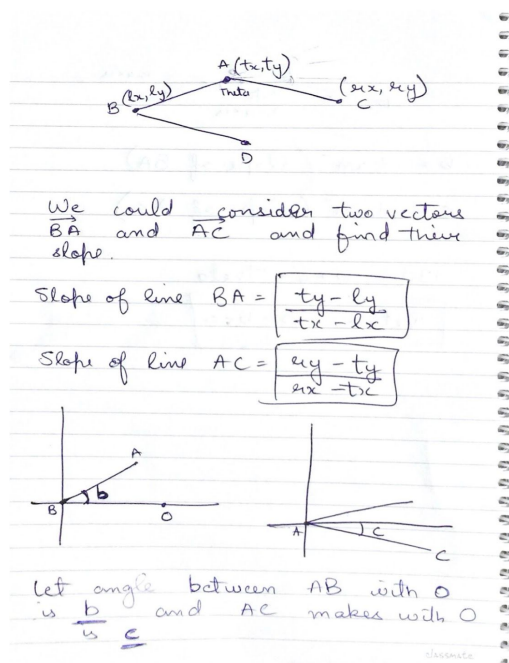 A (tx, ty)
B (lx, ly)
Theta
(rx, ry)
C
D
We could consider two vectors
BA and AC and find their
slope.
Slope of line BA = ty - ly
tx - lx
Slope of line AC = ry - ty
rx - tx
A
b
B
O
A
c
C
Let angle between AB with O
is b and AC makes with O
is c
classmate